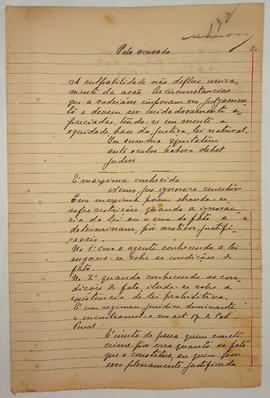 Pelo accusado
A culpabilidade não deflue unica-
mente da acção. As circunstancias
que a rodeiam imperam no julgamen-
to e devem ser cuidadosamente a-
preciadas, tendo-se em mente a
equidade, base da justiça, lei natural.
In omnibus equitatem
ante oculos habere debet
judex
É maxima conhecida
Nemo jus ignorare
Essa maxima porém
quando a ignoran-
cia da lei ou o erro de facto, a
determinam, por motivos justifi-
caveis.
No 1º caso o agente conhecendo a lei
engana-se sobre as condições do
facto.
No 2º quando conhecendo as con-
dições do facto, illude-se sobre a
existencia de lei prohibitiva.
É um regimen juridico dominante
e encontramol-o no art. 17 do Cod.
Penal.
É isento de pena quem commette
crime por erro quanto ao facto
que o constitue ou quem por
erro plenamente justificado